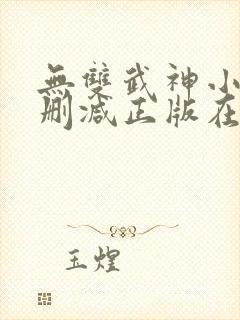 無雙武神小
刪減正版在
玉煌